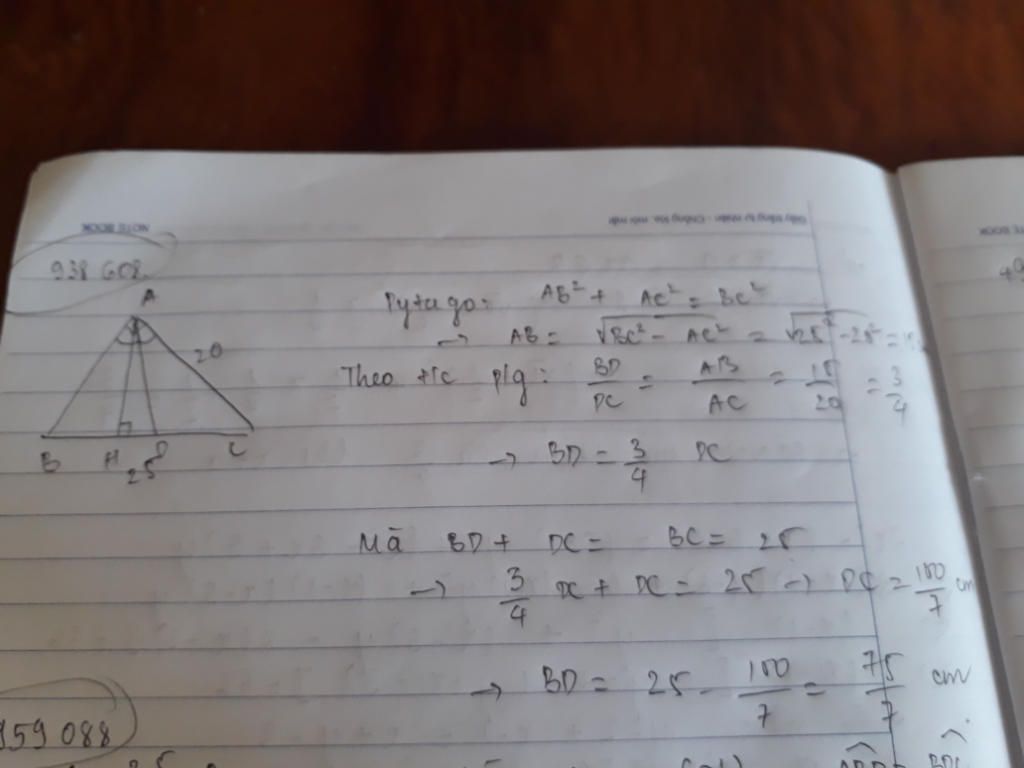 NOTE BOOK
Giấy trắng tự nhiên - Chống lóa, mỏi mắt
938 608.
A
20
B H D C
25
Pytago: AB² + AC² = BC²
→ AB = √BC² - AC² = √25² - 25² = 15
Theo t/c p/g: BD/DC = AB/AC = 15/20 = 3/4
→ BD = 3/4 DC
Mà BD + DC = BC = 25
→ 3/4 DC + DC = 25 → DC = 100/7 cm
→ BD = 25 - 100/7 = 75/7 cm
959 088